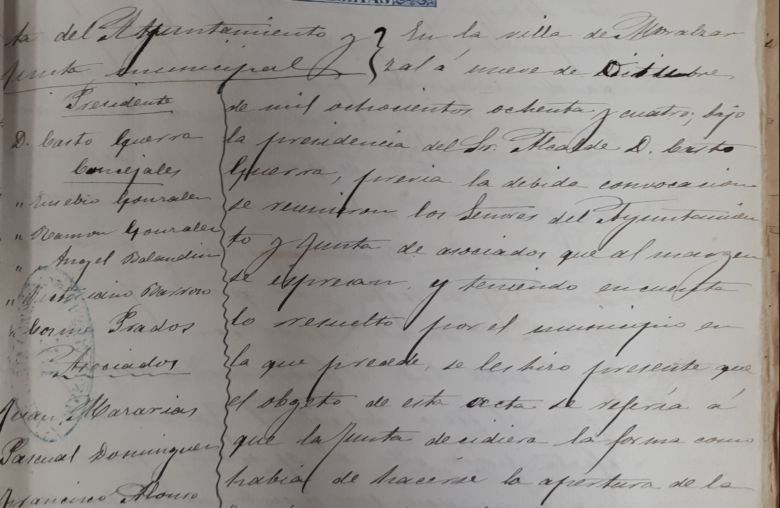 ta del Ayuntamiento y
junta municipal
Presidente
D. Casto Guerra
Concejales
" Eusebio Gonzalez
" Ramon Gonzalez
" Angel Balandin
" Victoriano Barroso
" Cosme Prados
Asociados
Juan Mazarias
Pascual Dominguez
Francisco Alonso
En la villa de Moralzar
zal á nueve de Diciembre
de mil ochocientos ochenta y cuatro; bajo
la presidencia del Sr. Alcalde D. Casto
Guerra, previa la debida convocacion
se reunieron los Señores del Ayuntamien
to y Junta de asociados que al margen
se espresan, y teniendo en cuenta
lo resuelto por el municipio en
la que precede, se les hizo presente que
el objeto de esta acta se referia á
que la Junta decidiera la forma como
habia de hacerse la apertura de la